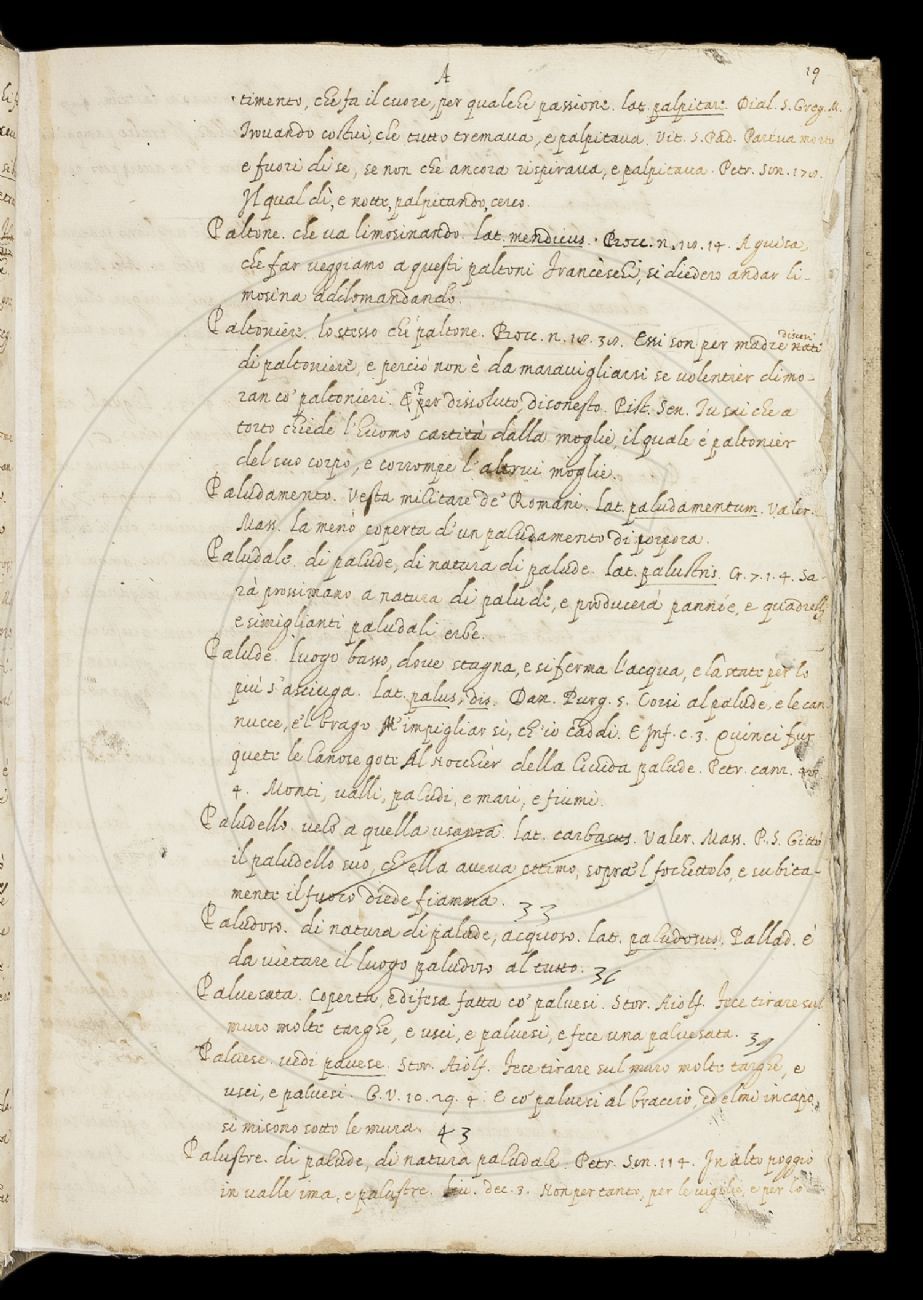 A 19
timento, che fa il cuore, per qualche passione. lat. palpitare. Dial. S. Greg. M.
Trouando costui, che tutto tremaua, e palpitaua. Vit. S. Pad. Pareua morto
e fuori di se, se non che ancora rispiraua, e palpitaua. Petr. Son. 178.
Il qual dì, e notte, palpitando, cerco.
Paltone. che ua limosinando. lat. mendicus. Bocc. n. 18. 14. A guisa,
che far ueggiamo a questi paltoni Franceschi, si diedero andar li-
mosina addomandando.
Paltoniere. lo stesso che paltone. Bocc. n. 18. 38. Essi son per madre discesi
di paltoniere, e perciò non è da marauigliarsi se uolentier dimo-
ran co' paltonieri. ¶ per dissoluto, disonesto. Pist. Sen. Tu sai che a
torto chiede l'huomo castità dalla moglie, il quale è paltonier
del suo corpo, e corrompe l'altrui moglie.
Paludamento. Vesta militare de' Romani. lat. paludamentum. Valer.
Mass. La menò coperta d'un paludamento di porpora.
Paludale. di palude, di natura di palude. lat. palustris. Cr. 7. 1. 4. Sa-
rà prossimano a natura di palude, e producerà pannie, e quadrelli
e simiglianti paludali erbe.
Palude. luogo basso, doue stagna, e si ferma l'acqua, e la state per lo
più s'asciuga. lat. palus, dis. Dan. Purg. 5. Corsi al palude, e le can-
nucce, e'l brago M'impigliar sì, ch'io caddi. E Inf. c. 3. Quinci fur
quete le lanose gote Al Nocchier della liuida palude. Petr. canz.
4. Monti, ualli, paludi, e mari, e fiumi.
Paludello. uelo a quella usanza. lat. carbasus. Valer. Mass. P. S. Gittò
il paludello suo, ch'ella aueua ottimo, sopra'l fochettolo, e subita-
mente il fuoco diede fiamma. 33
Paludoso. di natura di palude, acquoso. lat. paludosus. Pallad. è
da uietare il luogo paludoso al tutto. 36
Paluesata. Coperta, e difesa fatta co' paluesi. Stor. Aiolf. Fece tirare sul
muro molte targhe, e usci, e paluesi, e fece una paluesata. 39
Paluese. uedi pauese. Stor. Aiolf. Fece tirare sul muro molte targhe, e
usci, e paluesi. G. V. 10. 29. 4. E co' paluesi al braccio, ed elmi in capo,
si misono sotto le mura. 43
Palustre. di palude, di natura paludale. Petr. Son. 114. In alto poggio
in ualle ima, e palustre. Liu. dec. 3. Non per tanto, per le uigilie, e per lo